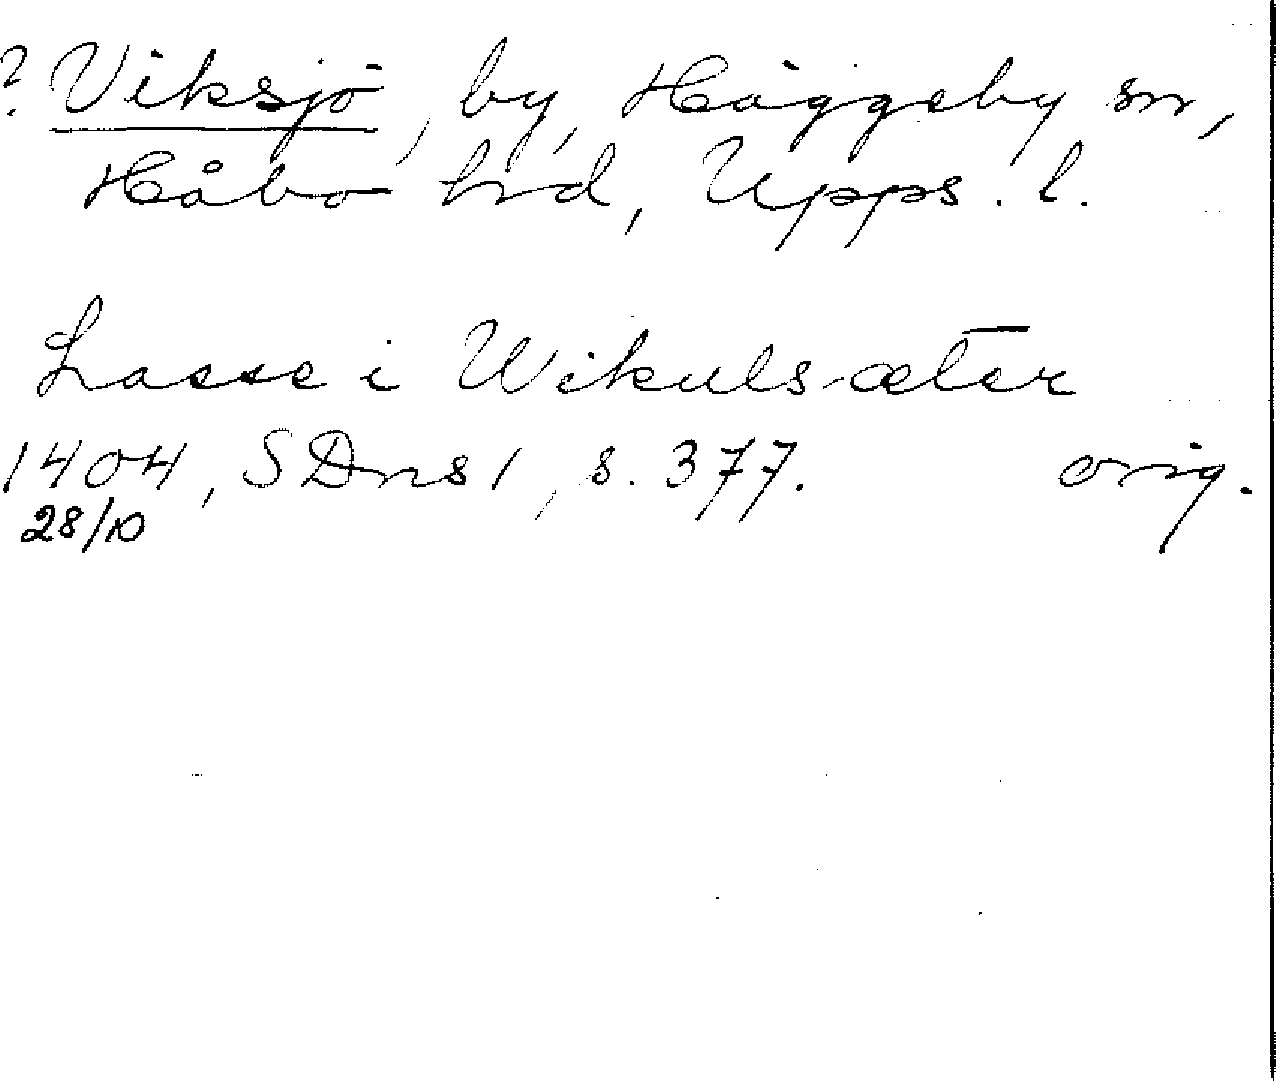 ? Viksjö, by, Häggeby sn,
Håbo hd, Upps. l.
Lasse i Wikulsæter
1404, SDns 1, s. 377. orig.
28/10